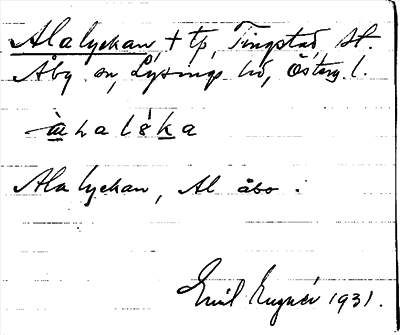 Alalyckan, + tp, Tingstad, St.
Åby sn, Lysings hd, Österg. l.
àLalỳka
Alalyckan, Al åbo.
Emil 1931.